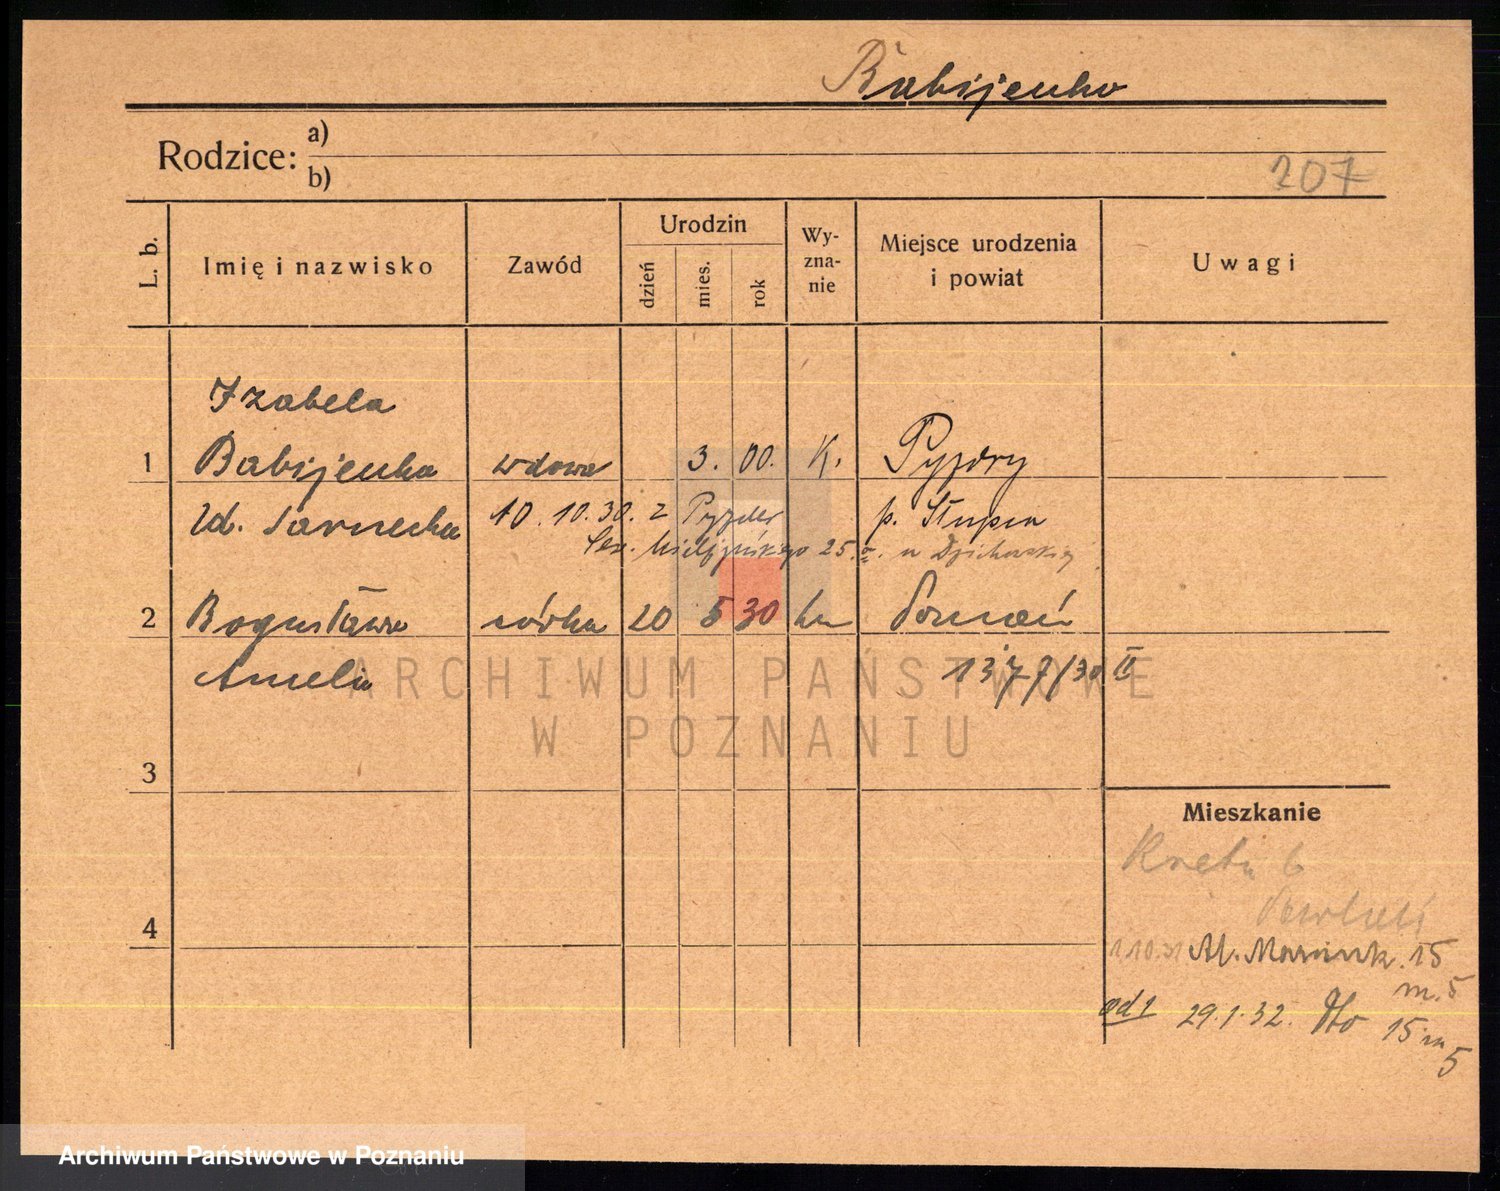 Babijenko
Rodzice: a)
b)
207
L. b.
Imię i nazwisko
Zawód
Urodzin
dzień
mies.
rok
Wy-
zna-
nie
Miejsce urodzenia
i powiat
Uwagi
Izabela
1 Babijenko wdowa 3. 00. K. Pyzdry
zd. Sarnecka 10.10.30. z Pyzder p. Słupca
25.
2 Bogusława córka 20 5 30 ka Poznań
Amelia 1377/30 II
3
Mieszkanie
6
4
1.10.31 Al. Marcink. 15
m. 5
od 1 29.1.32. dto 15 m
5
ARCHIWUM PAŃSTWOWE
W POZNANIU
Archiwum Państwowe w Poznaniu